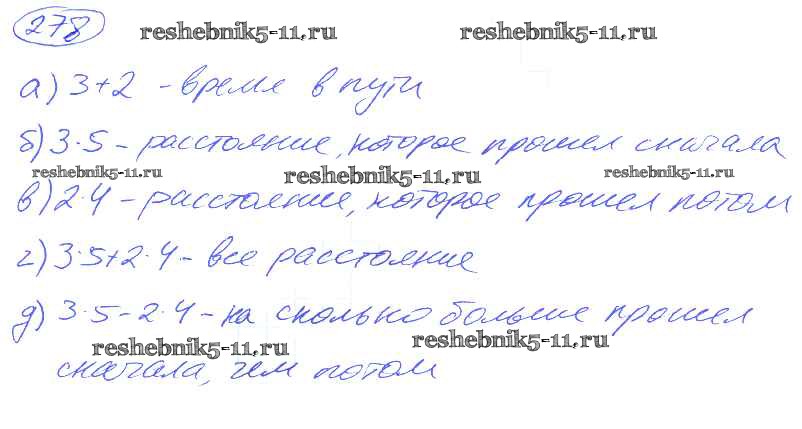 278
reshebnik5-11.ru reshebnik5-11.ru
а) 3+2 - время в пути
б) 3·5 - расстояние, которое прошел сначала
reshebnik5-11.ru reshebnik5-11.ru reshebnik5-11.ru
в) 2·4 - расстояние, которое прошел потом
г) 3·5+2·4 - все расстояние
д) 3·5-2·4 - на сколько больше прошел
reshebnik5-11.ru reshebnik5-11.ru
сначала, чем потом